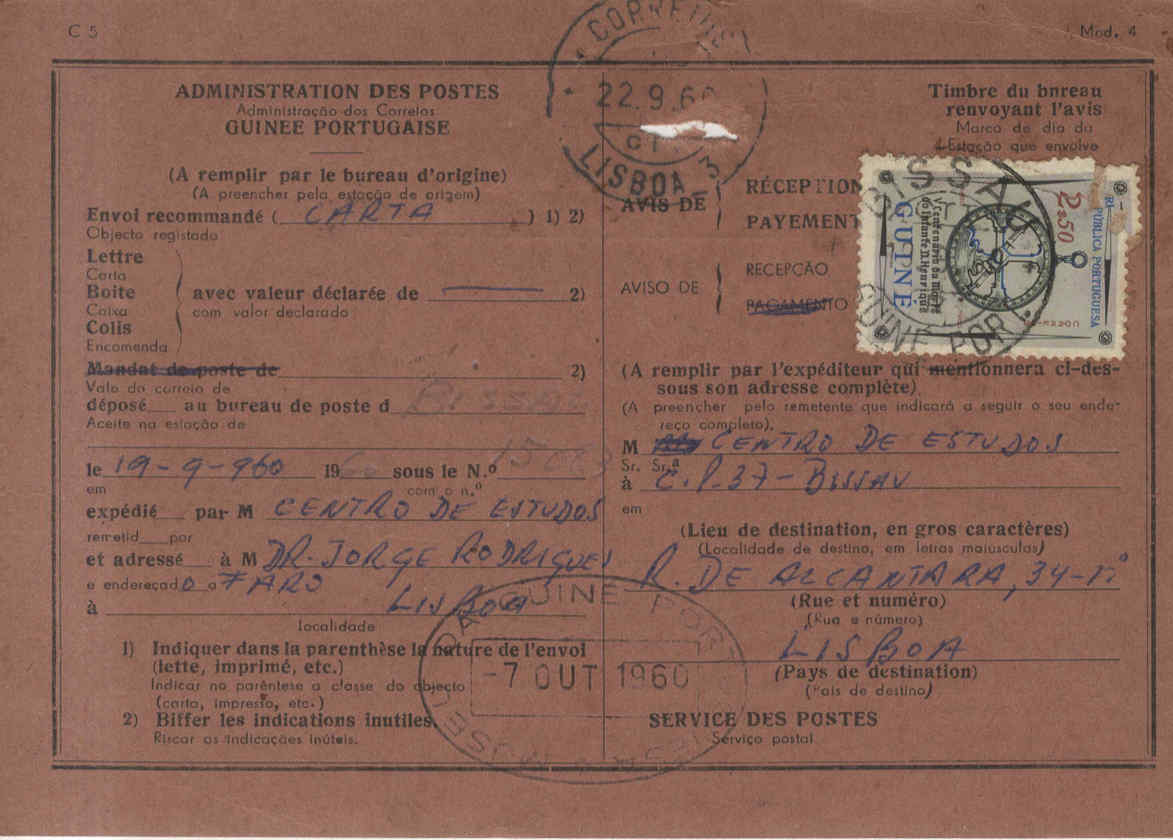 C 5
Mod. 4
ADMINISTRATION DES POSTES
Administração dos Correios
GUINEE PORTUGAISE
(A remplir par le bureau d'origine)
(A preencher pela estação de origem)
Envoi recommandé ( CARTA ) 1) 2)
Objecto registado
Lettre
Carta
Boite
Caixa
Colis
Encomenda
avec valeur déclarée de 2)
com valor declarado
Mandat de poste de 2)
Vale do correio de
déposé au bureau de poste d BISSAU
Aceite na estação de
le 19-9-960 1960 sous le N.º
em com o n.º
expédié par M CENTRO DE ESTUDOS
remetid por
et adressé à M DR. JORGE RODRIGUES
e endereçado a FARO
à LISBOA
localidade
1) Indiquer dans la parenthèse la nature de l'envoi
(lette, imprimé, etc.)
Indicar no parêntese a classe do objecto
(carta, impresso, etc.)
2) Biffer les indications inutiles.
Riscar as indicações inúteis.
CORREIOS
22.9.60
LISBOA 3
Timbre du bureau
renvoyant l'avis
Marca de dia da
Estação que envolve
AVIS DE
RÉCEPTION
PAYEMENT
AVISO DE
RECEPÇÃO
PAGAMENTO
BISSAU
GUINE PORT.
REPÚBLICA PORTUGUESA
2$50
V centenário da morte
do Infante D. Henrique
GUINÉ
(A remplir par l'expéditeur qui mentionnera ci-des-
sous son adresse complète)
(A preencher pelo remetente que indicará a seguir o seu ende-
reço completo).
M CENTRO DE ESTUDOS
Sr. Sr.ª
à C.P. 37 - BISSAU
em
(Lieu de destination, en gros caractères)
(Localidade de destino, em letras maiúsculas)
R. DE ALCANTARA, 34-
(Rue et numéro)
(Rua e número)
LISBOA
(Pays de destination)
(País de destino)
SERVICE DES POSTES
Serviço postal
GUINE PORT
-7 OUT 1960
MUSEU DA